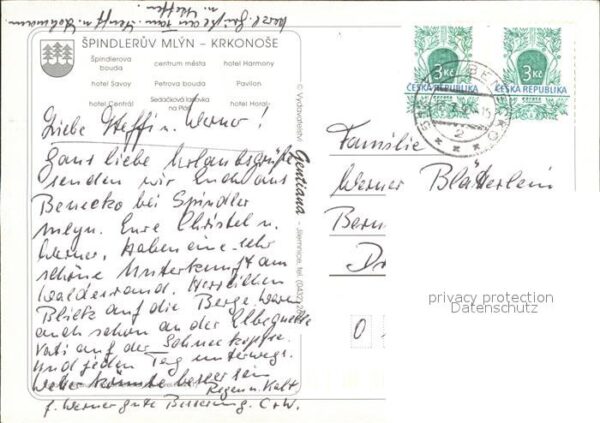 herzl. Grüße an Fam.
n. Steffen
ŠPINDLERŮV MLÝN – KRKONOŠE
Špindlerova bouda centrum města hotel Harmony
hotel Savoy Petrova bouda Pavilon
hotel Centrál Sedačková lanovka na Pláň hotel Horal
© Vydavatelství Gentiana – Jilemnice, tel. (0432)
3 Kč
ČESKÁ REPUBLIKA
3 Kč
ČESKÁ REPUBLIKA
BENECKO
2
Liebe Steffi u. Werner!
Ganz liebe Urlaubsgrüße
senden wir Euch aus
Benecko bei Spindler
mlyn. Eure Christel u.
Werner. Haben eine sehr
schöne Unterkunft am
Waldesrand. Herrlichen
Blick auf die Berge. Waren
auch schon an der Elbequelle
Vati auf der Schneekoppe.
Und jeden Tag unterwegs.
Wetter könnte besser sein
Regen u. Kalt
f. Werner gute Besserung. C+W.
Familie
Werner Blätterlein
Bern
Dr
0
privacy protection
Datenschutz